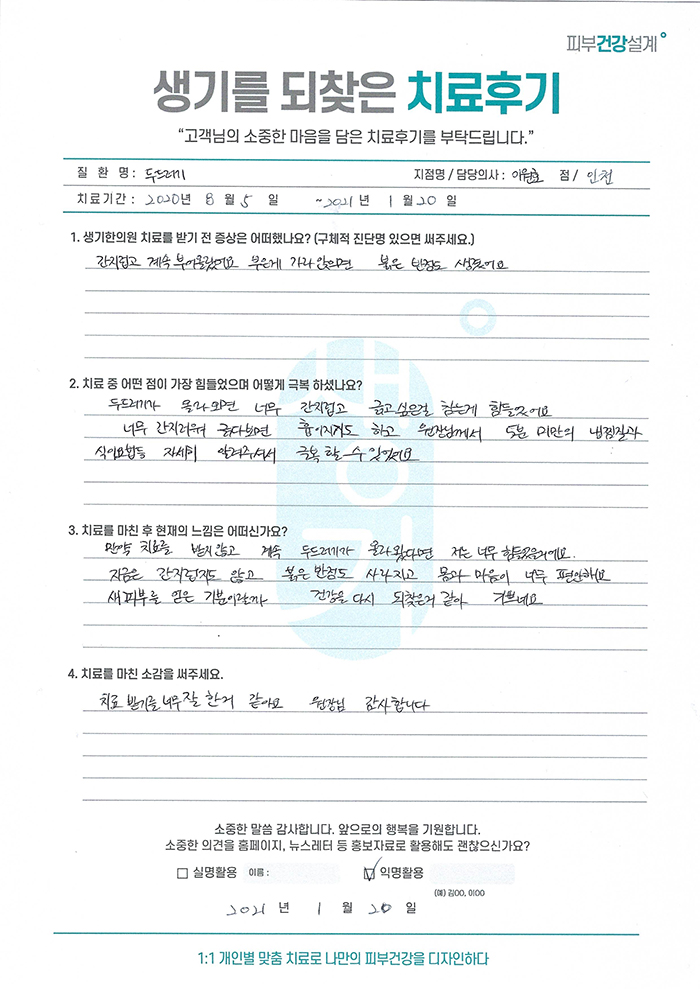 피부건강설계
생기를 되찾은 치료후기
“고객님의 소중한 마음을 담은 치료후기를 부탁드립니다.”
질 환 명 : 두드러기 지점명 / 담당의사 : 이원호 점 / 인천
치료기간 : 2020년 8 월 5 일 ~2021년 1 월 20 일
1. 생기한의원 치료를 받기 전 증상은 어떠했나요? (구체적 진단명 있으면 써주세요.)
간지럽고 계속 부어올랐어요 부은게 가라앉으면 붉은 반점도 생겼어요
2. 치료 중 어떤 점이 가장 힘들었으며 어떻게 극복 하셨나요?
두드러기가 올라오면 너무 간지럽고 긁고싶은걸 참는게 힘들었어요
너무 간지러워 긁다보면 흉이지기도 하고 원장님께서 5분 미만의 냉찜질과
식이요법등 자세히 알려주셔서 극복 할 수 있었어요
3. 치료를 마친 후 현재의 느낌은 어떠신가요?
만약 치료를 받지않고 계속 두드러기가 올라왔다면 저는 너무 힘들었을거에요.
지금은 간지럽지도 않고 붉은반점도 사라지고 몸과 마음이 너무 편안해요
새피부를 얻은 기분이랄까 건강을 다시 되찾은거 같아 기쁘네요
4. 치료를 마친 소감을 써주세요.
치료 받기를 너무 잘 한거 같아요 원장님 감사합니다
생기
소중한 말씀 감사합니다. 앞으로의 행복을 기원합니다.
소중한 의견을 홈페이지, 뉴스레터 등 홍보자료로 활용해도 괜찮으신가요?
실명활용 이름 : 익명활용
(예) 김OO, 이OO
2021 년 1 월 20 일
1:1 개인별 맞춤 치료로 나만의 피부건강을 디자인하다